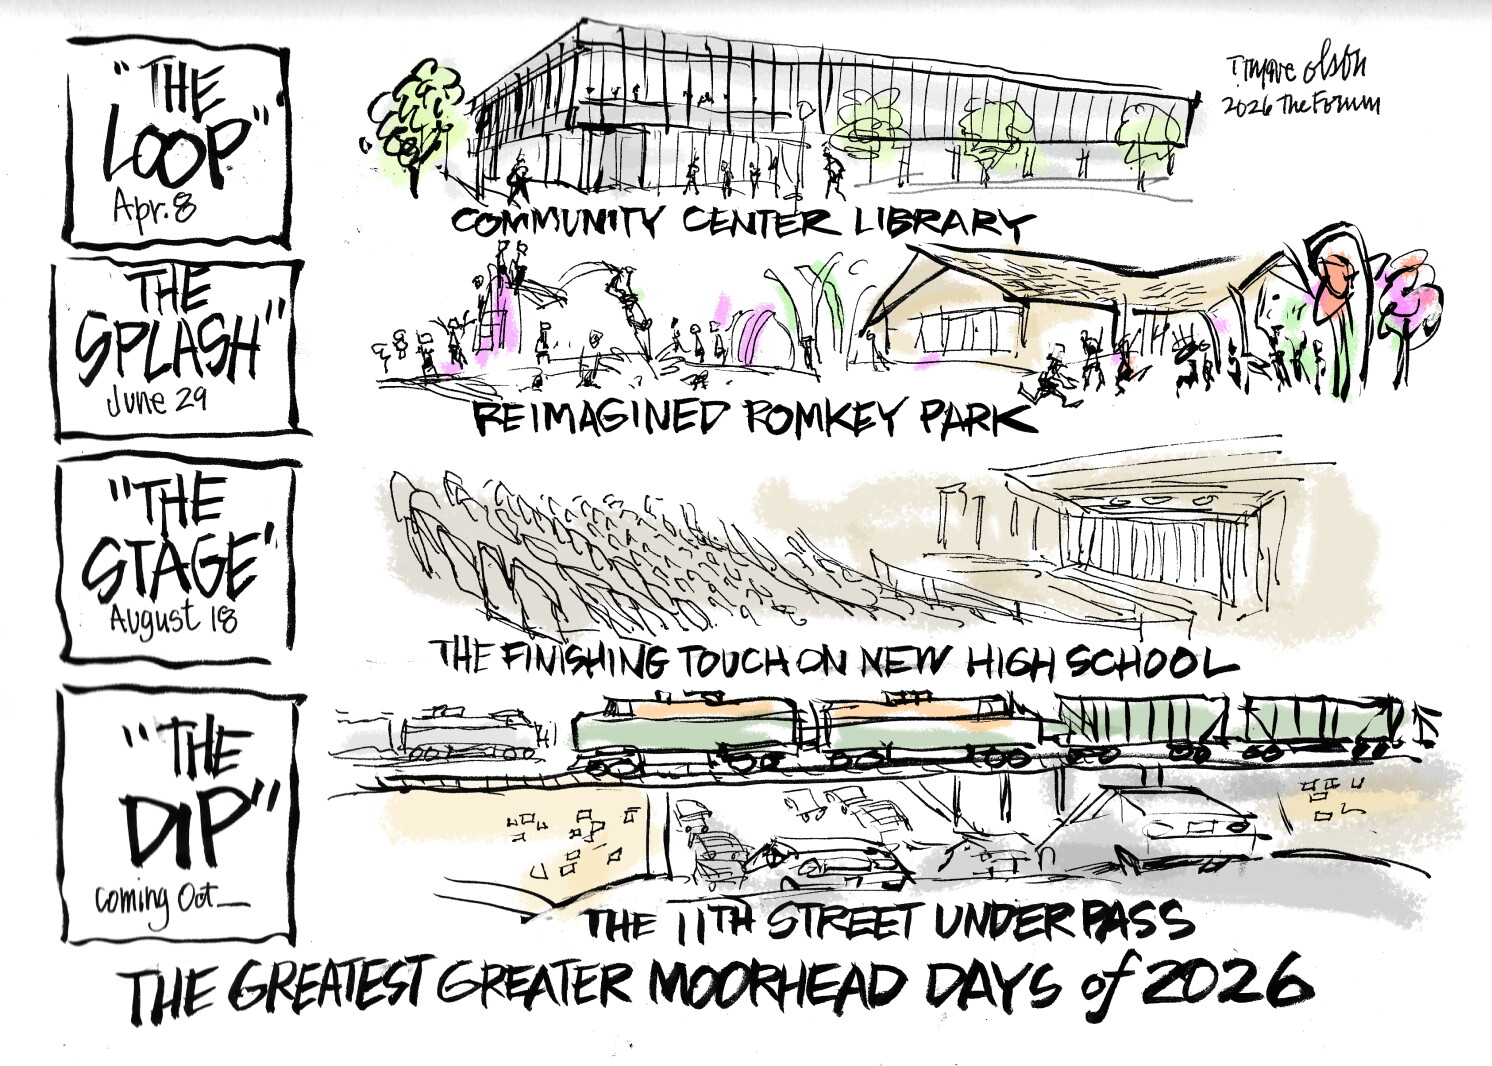 Trygve Olson
2026 The Forum
"THE
LOOP"
Apr. 8
COMMUNITY CENTER LIBRARY
THE
SPLASH"
June 29
REIMAGINED ROMKEY PARK
"THE
STAGE"
August 18
THE FINISHING TOUCH ON NEW HIGH SCHOOL
"THE
DIP"
coming Oct_
THE 11TH STREET UNDERPASS
THE GREATEST GREATER MOORHEAD DAYS of 2026